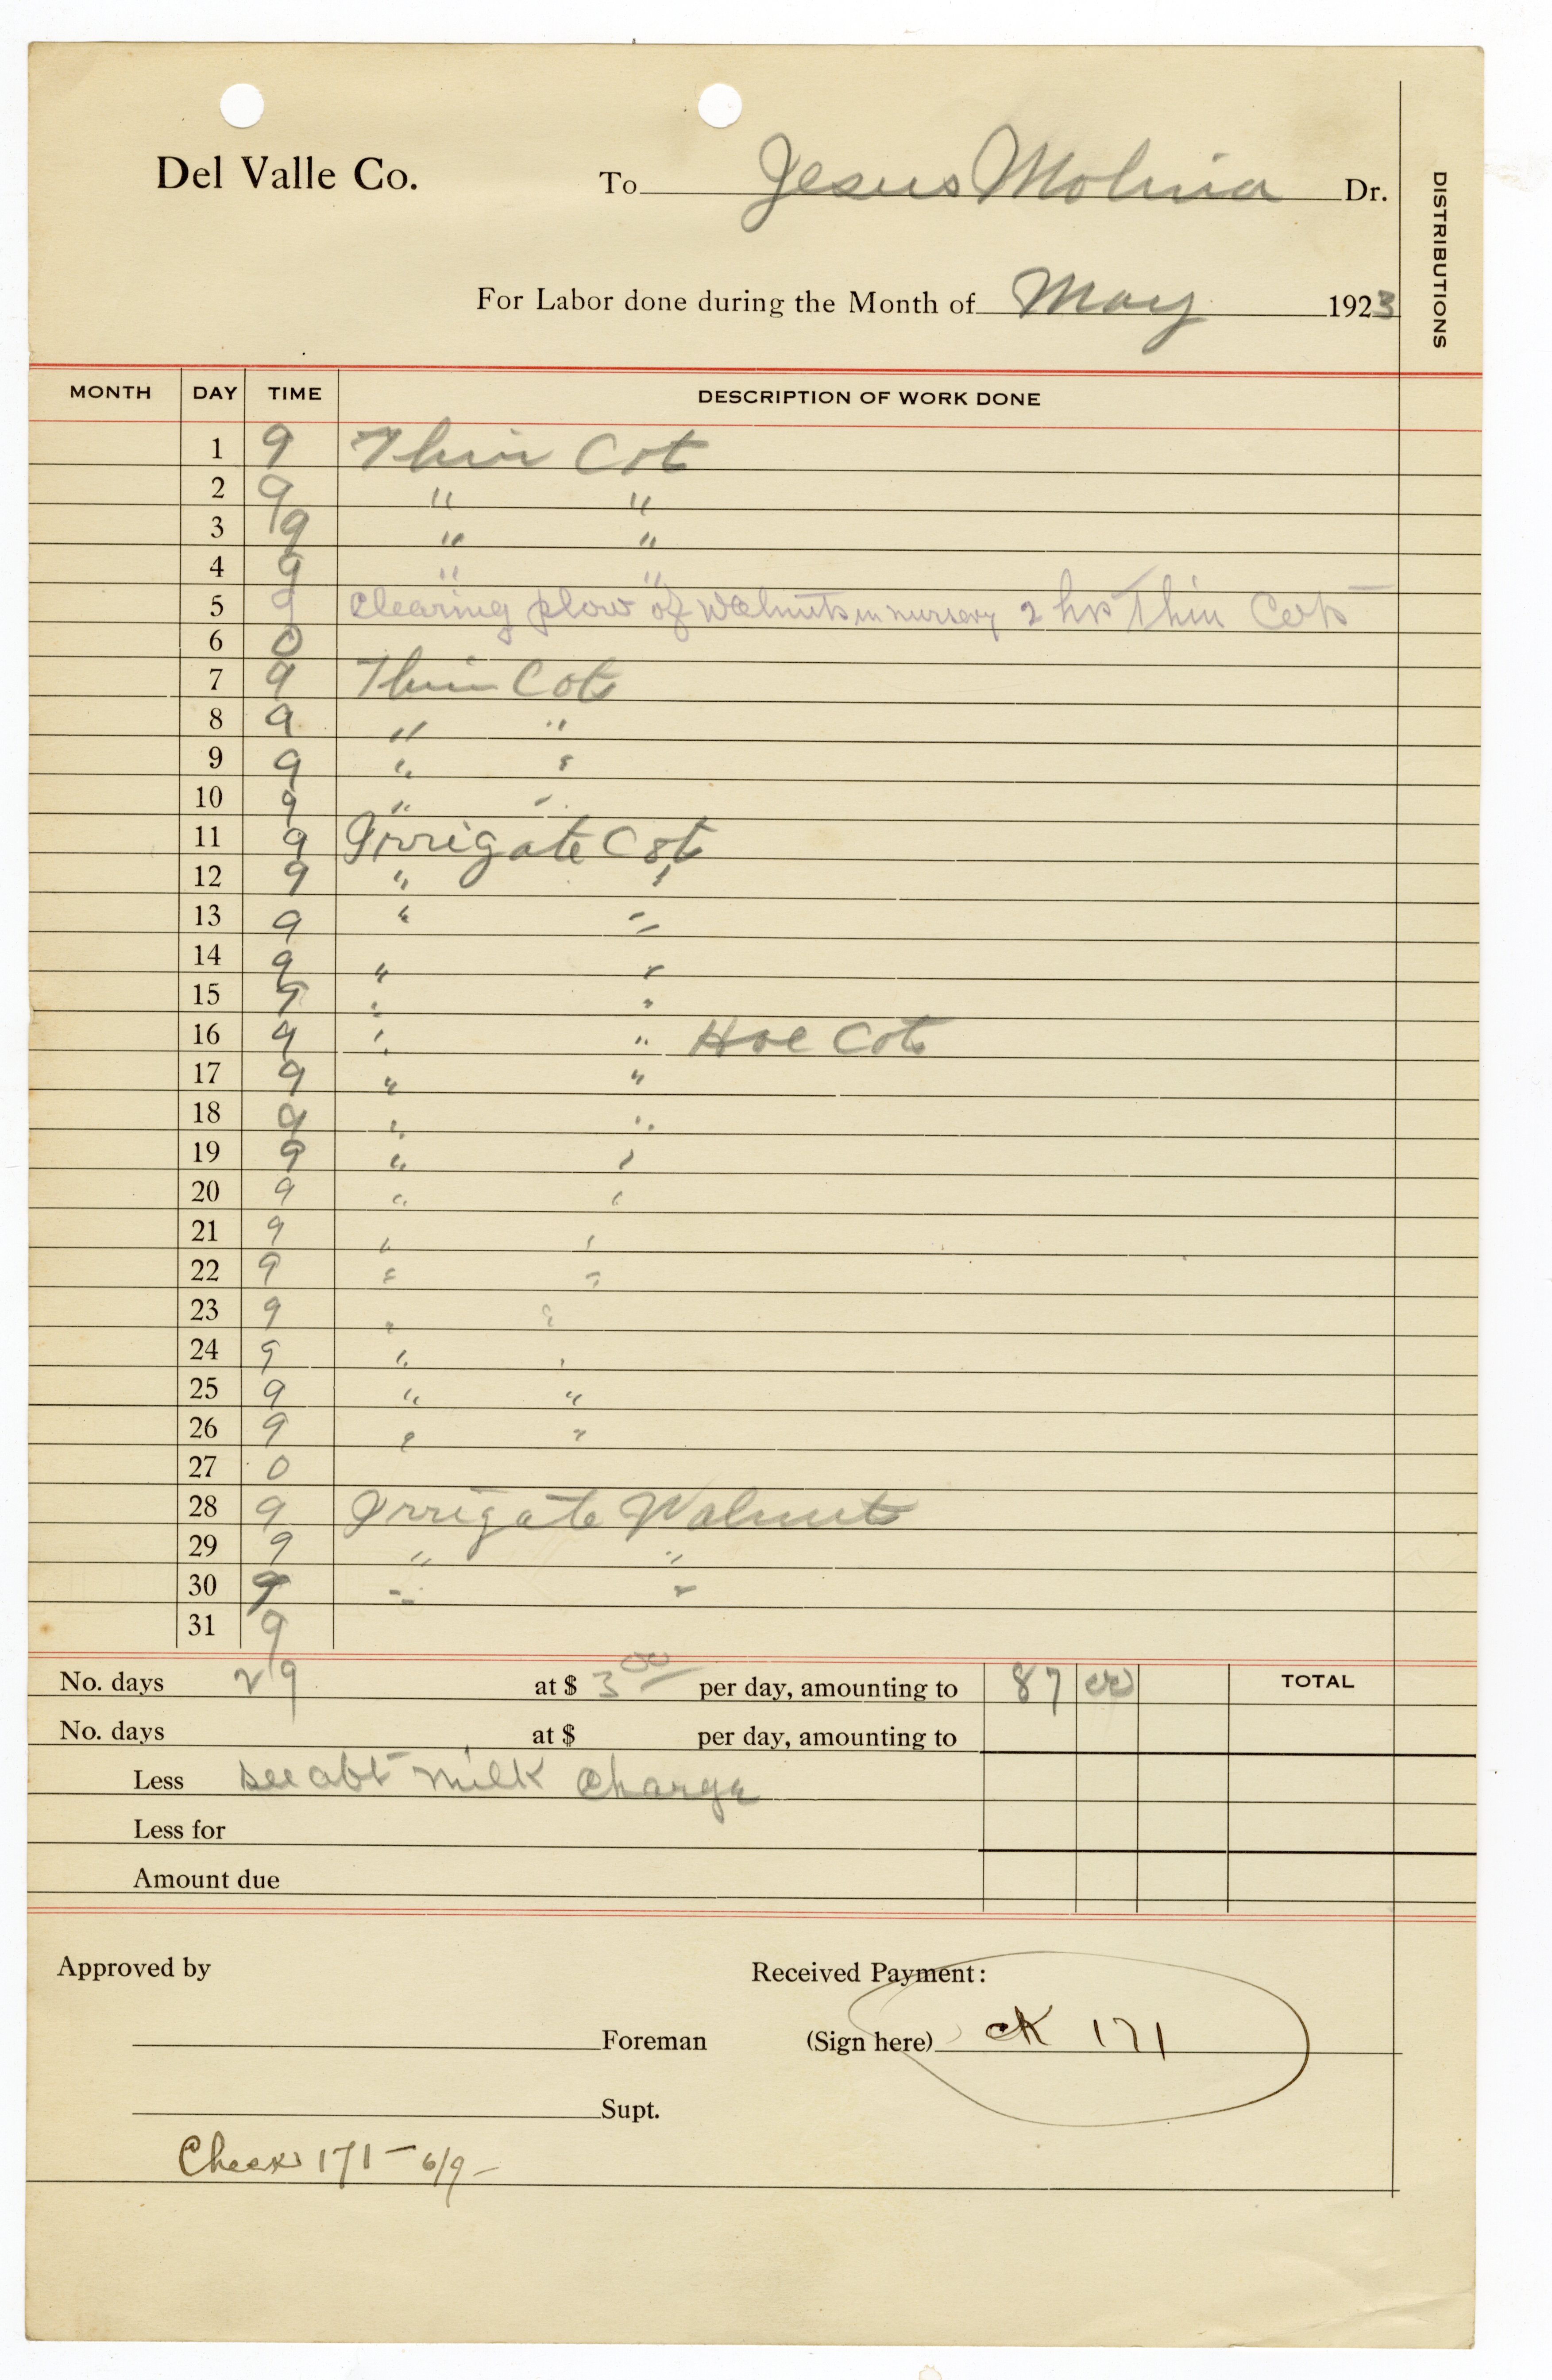 Del Valle Co. To Jesus Molina Dr.
DISTRIBUTIONS
For Labor done during the Month of May 1923
MONTH DAY TIME DESCRIPTION OF WORK DONE
1 9 Thin Cot
2 9 " "
3 9 " "
4 9 " "
5 9 Clearing plow of Walnuts in nursery 2 hrs Thin Cots
6 0
7 9 Thin Cots
8 9 " "
9 9 " "
10 9 " "
11 9 Irrigate Cots
12 9 " "
13 9 " "
14 9 " "
15 9 " "
16 9 " " Hoe Cots
17 9 " "
18 9 " "
19 9 " "
20 9 " "
21 9 " "
22 9 " "
23 9 " "
24 9 " "
25 9 " "
26 9 " "
27 0
28 9 Irrigate Walnuts
29 9 " "
30 9 " "
31 9
No. days 29 at $ 3 00 per day, amounting to 87 00 TOTAL
No. days at $ per day, amounting to
Less see abt milk charge
Less for
Amount due
Approved by Received Payment:
Foreman (Sign here) ck 171
Supt.
Check 171 - 6/9 -